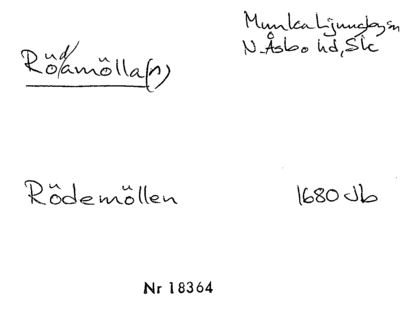 Munka Ljungbysn
N. Åsbo hd, Sk
Rödamölla(n)
Rödemöllen 1680 Jb
Nr 18364